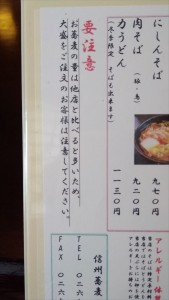 にしんそば
九七〇円
肉そば
(鶏・馬)
九二〇円
力うどん
(冬季限定 そばも出来ます)
一一三〇円
要注意
お蕎麦の量は他店と比べると多いため。
大盛をご注文のお客様は注意してください。
アレルギー
信州蕎麦
TEL 026
FAX 026